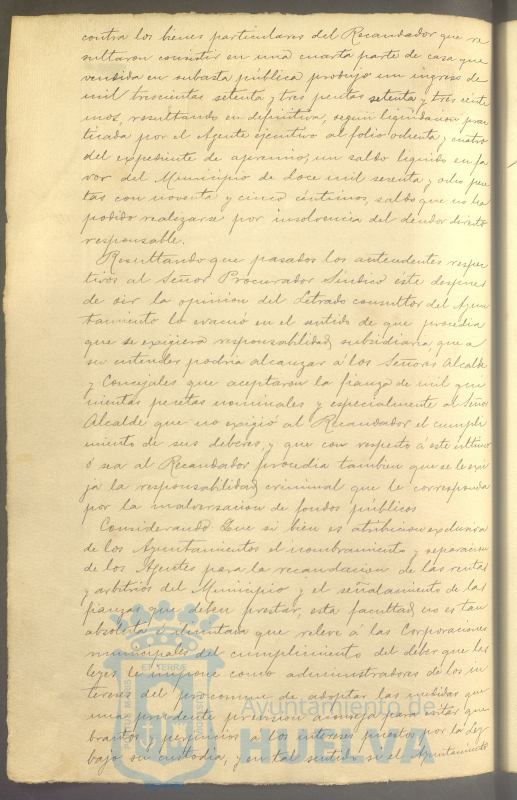 contra los bienes particulares del Recaudador que re
sultaron consistir en una cuarta parte de casa que
vendida en subasta pública produjo un ingreso de
mil trescientas setenta y tres pesetas setenta y tres cénti
mos, resultando en definitiva, según liquidacion prac
ticada por el Agente ejecutivo al folio ochenta y cuatro
del expediente de apremio, un saldo liquido en fa
vor del Municipio de doce mil sesenta y ocho pese
tas con noventa y cinco céntimos, saldo que no ha
podido realizarse por insolvencia del deudor directo
responsable.
Resultando que pasados los antecedentes respec
tivos al Señor Procurador Síndico éste despues
de oir la opinion del Letrado consultor del Ayun
tamiento lo evacuó en el sentido de que procedia
que se exigiera responsabilidad subsidiaria, que a
su entender podria alcanzar á los Señores Alcalde
y Concejales que aceptaron la fianza de mil qui
nientas pesetas nominales y especialmente al Señor
Alcalde que no exigió al Recaudador el cumpli
miento de sus deberes, y que con respecto á este ultimo
ó sea al Recaudador procedia tambien que se le exi
ja la responsabilidad criminal que le corresponda
por la malversacion de fondos públicos
Considerando: Que si bien es atribucion exclusiva
de los Ayuntamientos el nombramiento y separacion
de los Agentes para la recaudacion de las rentas
y arbitrios del Municipio y el señalamiento de las
fianzas que deben prestar, esta facultad no es tan
absoluta é ilimitada que releve á las Corporaciones
municipales del cumplimiento del deber que las
leyes le impone como administradores de los in
tereses del procomun de adoptar las medidas que
una prudente prevision aconseja para evitar que
brantos y perjuicios á los intereses puestos por la ley
bajo su custodia, y en tal sentido si el Ayuntamiento
ET TERRÆ
Ayuntamiento de
HUELVA